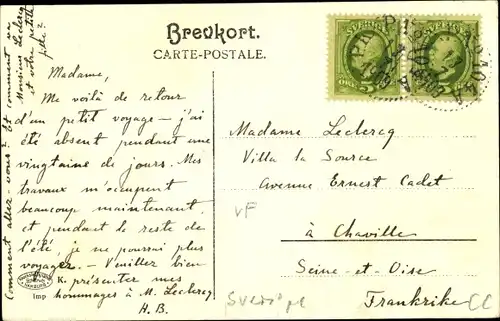 Brevkort.
CARTE-POSTALE.
Comment allez-vous? Et comment va
Monsieur Leclercq
et votre petite
fille?
Madame,
Me voilà de retour
d'un petit voyage — j'ai
été absent pendant une
vingtaine de jours. Mes
travaux m'occupent
beaucoup maintenant,
et pendant le reste de
l'été, je ne pourrai plus
voyager. — Veuillez bien
présenter mes
hommages à M. Leclercq
A.B.
K.
Imp
SVERIGE
SVERIGE
Madame Leclercq
Villa la Source
Avenue Ernest Cadet
à Chaville
Seine-et-Oise
Frankrike
VF
CC